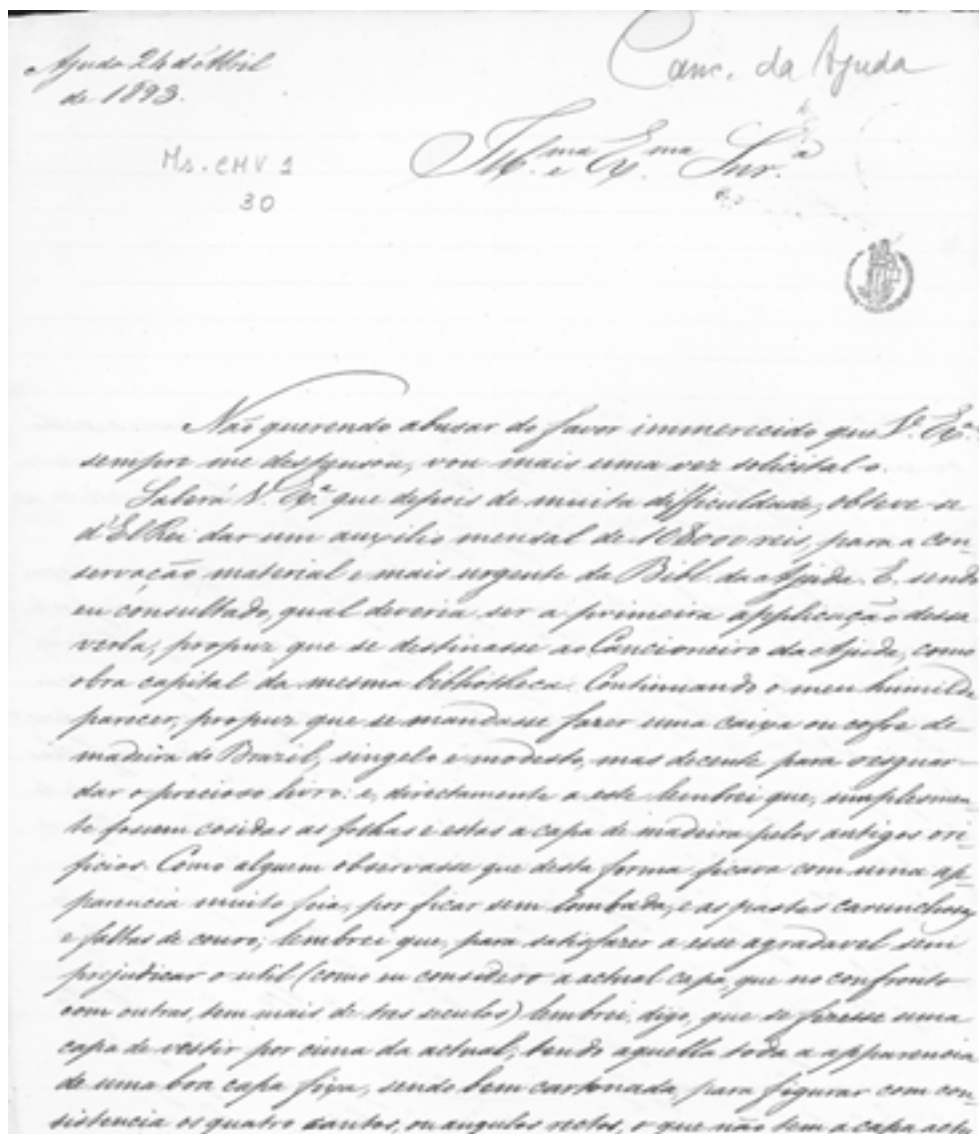 Ajuda 24 d'Abril
de 1893.
Canc. da Ajuda
Ms. CMV 1
30
Ill.ma e Ex.ma Snr.a
Não querendo abusar do favor immerecido que V. Ex.a
sempre me dispensou, vou mais uma vez solicital-o.
Saberá V. Ex.a que depois de muita difficuldade, obteve-se
d'El Rei dar um auxilio mensal de 10$000 reis, para a con-
servação material e mais urgente da Bibl. da Ajuda. E, sendo
eu consultado, qual deveria ser a primeira applicação dessa
verba, propuz que se destinasse ao Cancioneiro da Ajuda, como
obra capital da mesma bibliotheca. Continuando o meu humilde
parecer, propuz que se mandasse fazer uma caixa ou cofre de
madeira do Brazil, singelo e modesto, mas decente para resguar-
dar o precioso livro: e, directamente a este lembrei que, simplesmen-
te fossem cosidas as folhas e estas a capa de madeira pelos antigos ori-
ficios. Como alguem observasse que desta forma ficava com uma ap-
parencia muito feia, por ficar sem lombada, e as pastas carunchosas
e faltas de couro; lembrei que, para satisfazer a esse agradavel sem
prejudicar o util (como eu considero a actual capa, que no confronto
com outras, tem mais de tres seculos) lembrei, digo, que se fizesse uma
capa de vestir por cima da actual, tendo aquella toda a apparencia
de uma boa capa fixa, sendo bem cartonada, para figurar com con-
sistencia os quatro cantos, ou angulos rectos, o que não tem a capa